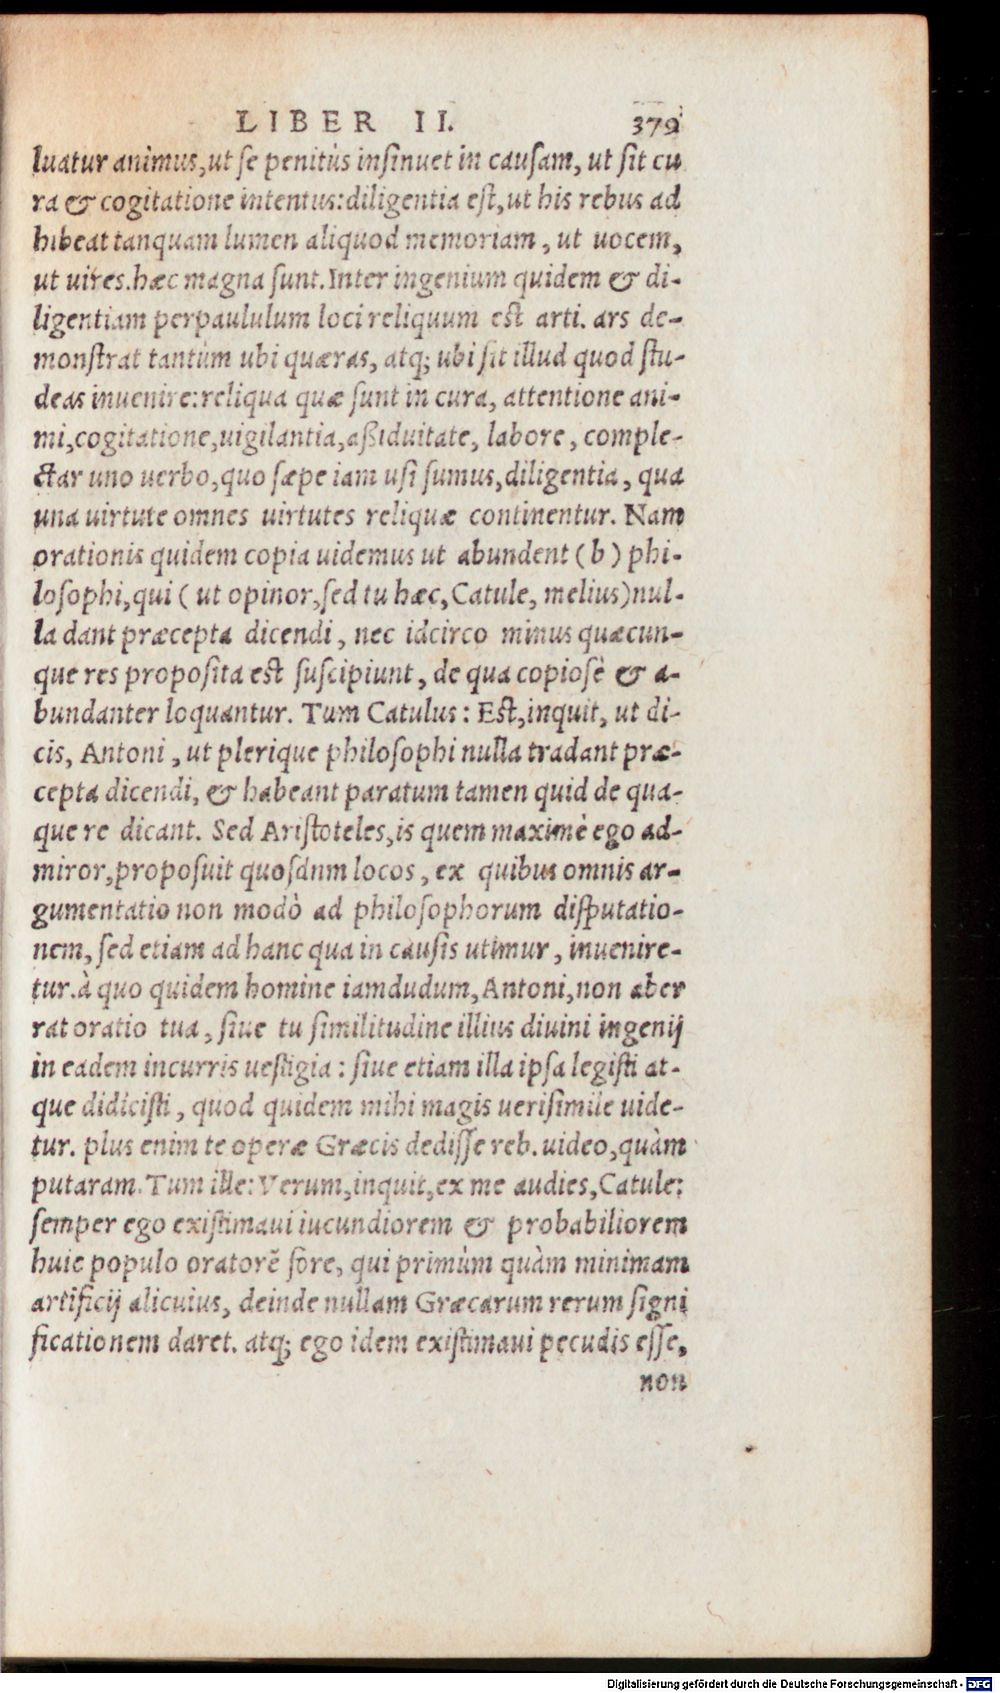 LIBER II. 379
luatur animus,ut se penitùs insinuet in causam, ut sit cu
ra & cogitatione intentus:diligentia est,ut his rebus ad
hibeat tanquam lumen aliquod memoriam, ut uocem,
ut uires.hæc magna sunt.Inter ingenium quidem & di-
ligentiam perpaululum loci reliquum est arti. ars de-
monstrat tantùm ubi quæras, atq; ubi sit illud quod stu-
deas inuenire:reliqua quæ sunt in cura, attentione ani-
mi,cogitatione,uigilantia,aßiduitate, labore, comple-
ctar uno uerbo,quo sæpe iam usi sumus,diligentia, qua
una uirtute omnes uirtutes reliquæ continentur. Nam
orationis quidem copia uidemus ut abundent (b) phi-
losophi,qui ( ut opinor,sed tu hæc,Catule, melius)nul-
la dant præcepta dicendi, nec idcirco minus quæcun-
que res proposita est suscipiunt, de qua copiosè & a-
bundanter loquantur. Tum Catulus: Est,inquit, ut di-
cis, Antoni, ut plerique philosophi nulla tradant præ-
cepta dicendi, & habeant paratum tamen quid de qua-
que re dicant. Sed Aristoteles,is quem maximè ego ad-
miror,proposuit quosdnm locos, ex quibus omnis ar-
gumentatio non modò ad philosophorum disputatio-
nem, sed etiam ad hanc qua in causis utimur, inuenire-
tur.à quo quidem homine iamdudum,Antoni,non aber
rat oratio tua, siue tu similitudine illius diuini ingenij
in eadem incurris uestigia: siue etiam illa ipsa legisti at-
que didicisti, quod quidem mihi magis uerisimile uide-
tur. plus enim te operæ Græcis dedisse reb. uideo,quàm
putaram. Tum ille: Verum,inquit,ex me audies,Catule:
semper ego existimaui iucundiorem & probabiliorem
huic populo oratorẽ fore, qui primùm quàm minimam
artificij alicuius, deinde nullam Græcarum rerum signi
ficationem daret. atq; ego idem existimaui pecudis esse,
non
Digitalisierung gefördert durch die Deutsche Forschungsgemeinschaft - DFG